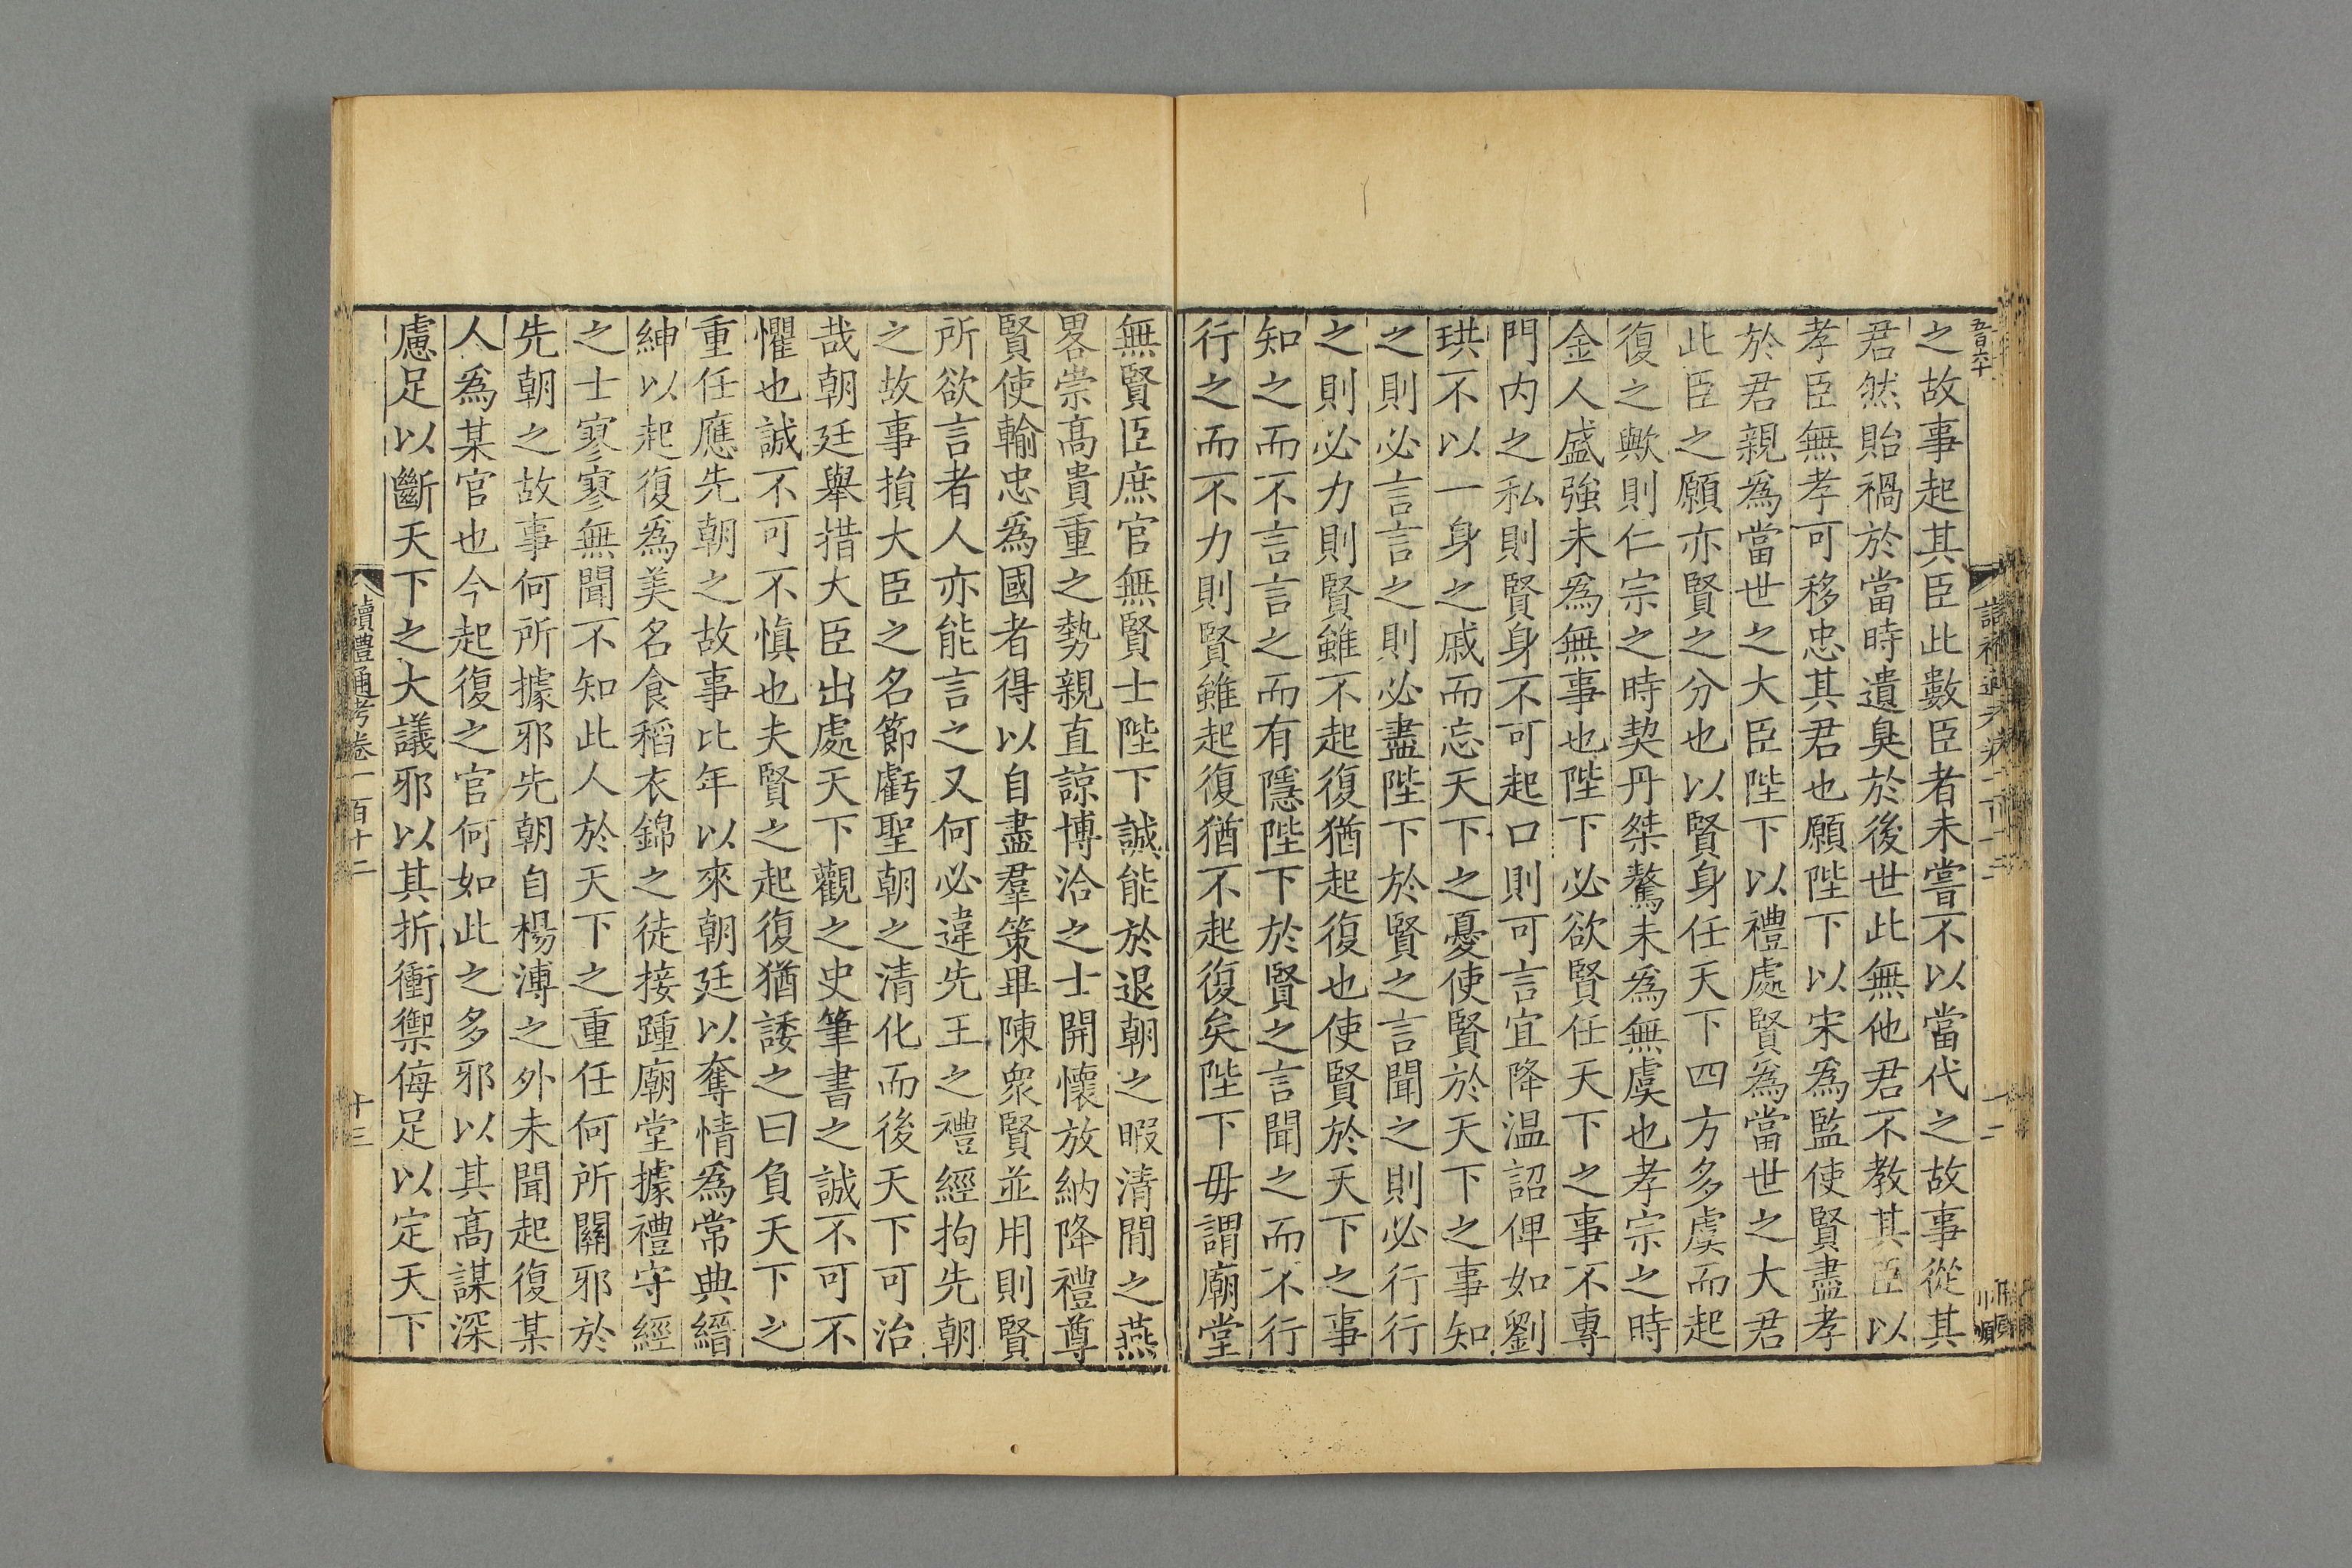 之故事起其臣此數臣者未嘗不以當代之故事從其
君然貽禍於當時遺臭於後世此無他君不教其臣以
孝臣無孝可移忠其君也願陛下以宋爲監使賢盡孝
於君親爲當世之大臣陛下以禮處賢爲當世之大君
此臣之願亦賢之分也以賢身任天下四方多虞而起
復之歟則仁宗之時契丹桀驁未爲無虞也孝宗之時
金人盛強未爲無事也陛下必欲賢任天下之事不專
門内之私則賢身不可起口則可言宜降温詔俾如劉
珙不以一身之戚而忘天下之憂使賢於天下之事知
之則必言言之則必盡陛下於賢之言聞之則必行行
之則必力則賢雖不起復猶起復也使賢於天下之事
知之而不言言之而有隱陛下於賢之言聞之而不行
行之而不力則賢雖起復猶不起復矣陛下毋謂廟堂
無賢臣庶官無賢士陛下誠能於退朝之暇清閒之燕
畧崇高貴重之勢親直諒博洽之士開懷放納降禮尊
賢使輸忠爲國者得以自盡羣策畢陳衆賢並用則賢
所欲言者人亦能言之又何必違先王之禮經拘先朝
之故事損大臣之名節虧聖朝之清化而後天下可治
哉朝廷舉措大臣出處天下觀之史筆書之誠不可不
懼也誠不可不慎也夫賢之起復猶諉之曰負天下之
重任應先朝之故事比年以來朝廷以奪情爲常典縉
紳以起復爲美名食稻衣錦之徒接踵廟堂據禮守經
之士寥寥無聞不知此人於天下之重任何所關邪於
先朝之故事何所據邪先朝自楊溥之外未聞起復某
人爲某官也今起復之官何如此之多邪以其高謀深
慮足以斷天下之大議邪以其折衝禦侮足以定天下
讀禮通考卷一百十二
十三